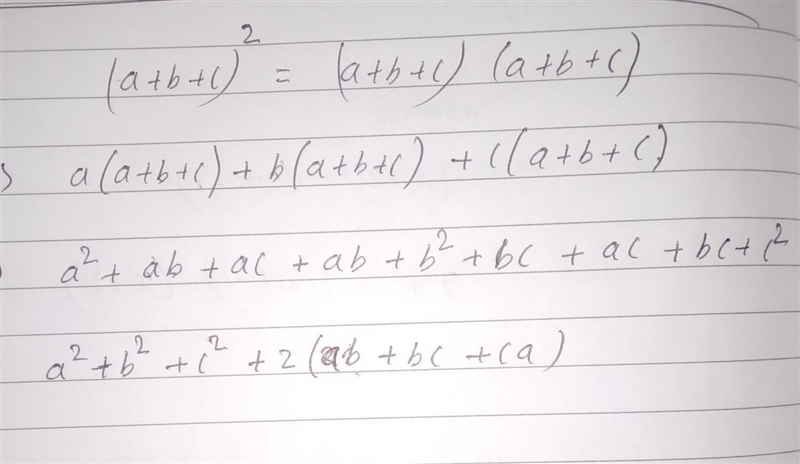 (a+b+c)² = (a+b+c) (a+b+c)
a(a+b+c) + b(a+b+c) + c(a+b+c)
a² + ab + ac + ab + b² + bc + ac + bc + c²
a² + b² + c² + 2(ab + bc + ca)